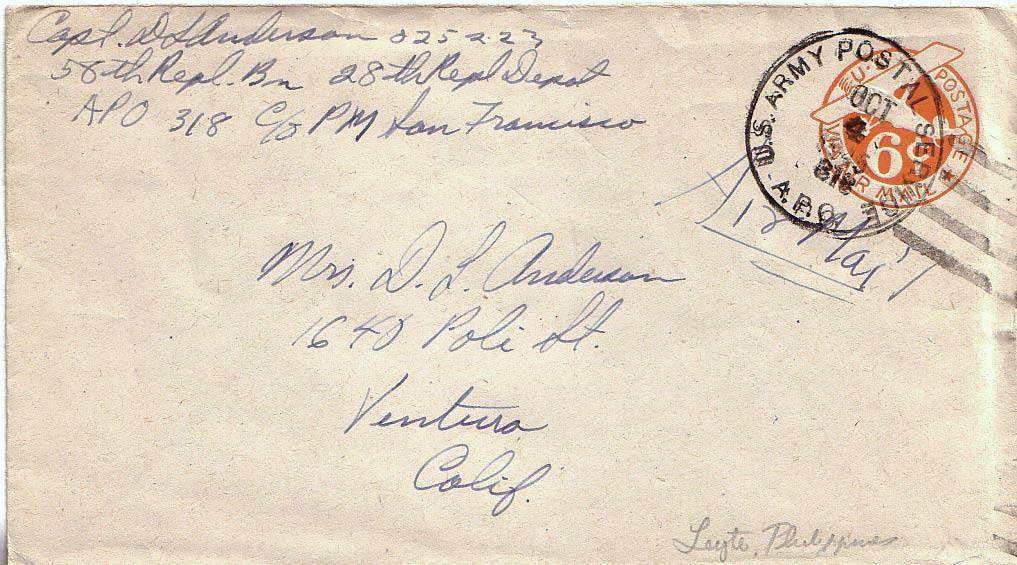 Capt. D L Anderson 025223
58th Repl. Bn 28th Repl Depot
APO 318 C/o PM San Francisco
U.S. ARMY POSTAL SERVICE
A.P.O.
OCT
318
U.S. POSTAGE
VIA AIR MAIL
6¢
Air Mail
Mrs. D. L. Anderson
1640 Poli St.
Ventura
Calif.
Leyte, Philippines